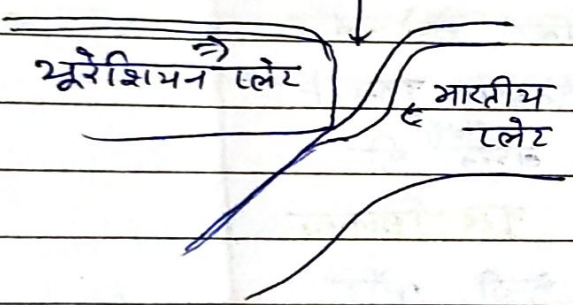 यूरेशियन प्लेट
भारतीय
प्लेट